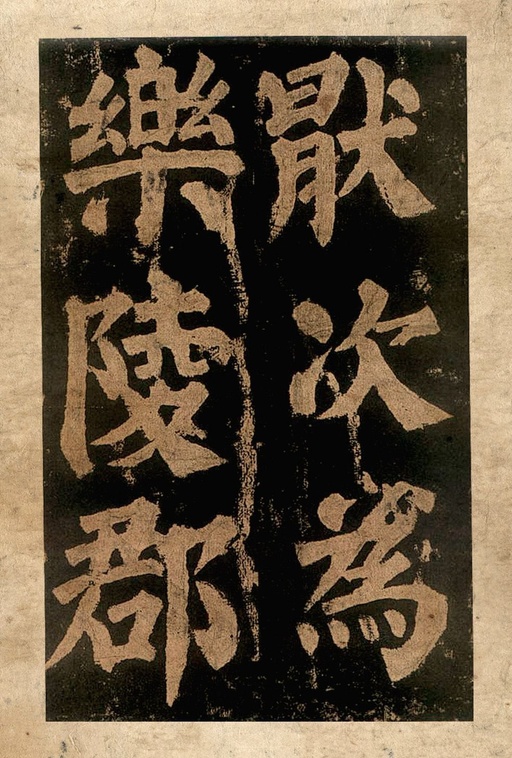 猒次爲
樂陵郡